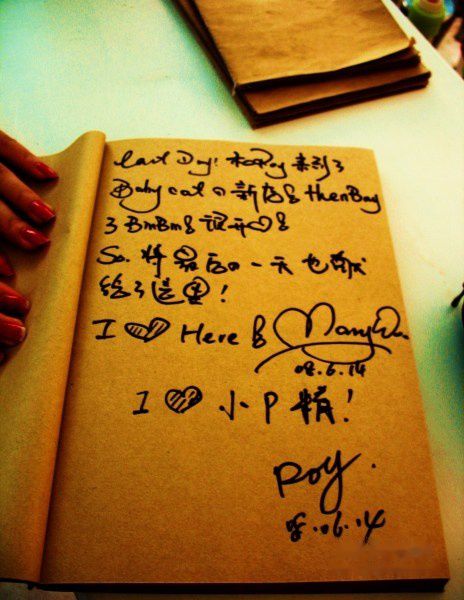 Last Day! 和Roy 来到了
Baby cat の 新店& then Buy
了 BmBm& 很开♡&
So. 将 最后の 一天 也献
给了这里!
I ♡ Here & Mary
08.6.14
I ♡ 小P精!
Roy.
08.06.14